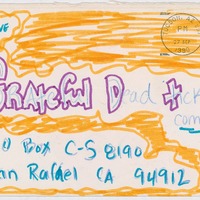 PM
Grateful Dead tick
com
O Box C-S 8190
an Rafael CA 94912